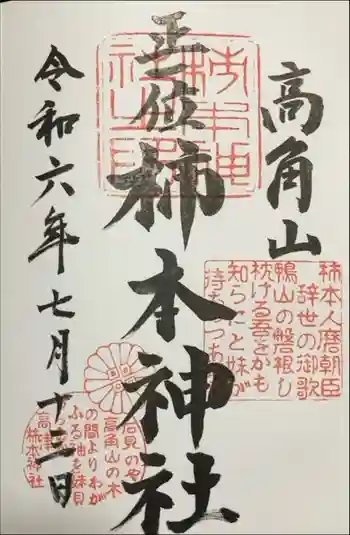 高角山
正一位柿本神社
令和六年七月十二日
柿本神社之印
柿本人麿朝臣
辞世の御歌
鴨山の磐根し
枕ける吾をかも
知らにと妹が
待ちつつあ
石見のや
高角山の木
の間よりわが
ふる袖を妹見
高津
柿本神社